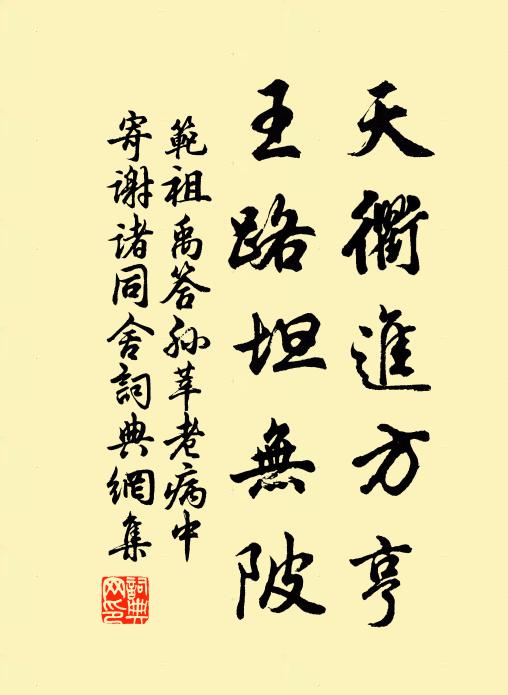 天衢進方亨
王路坦無陂
範祖禹答孙莘老病中
寄谢诸同舍詞典網集
詞典